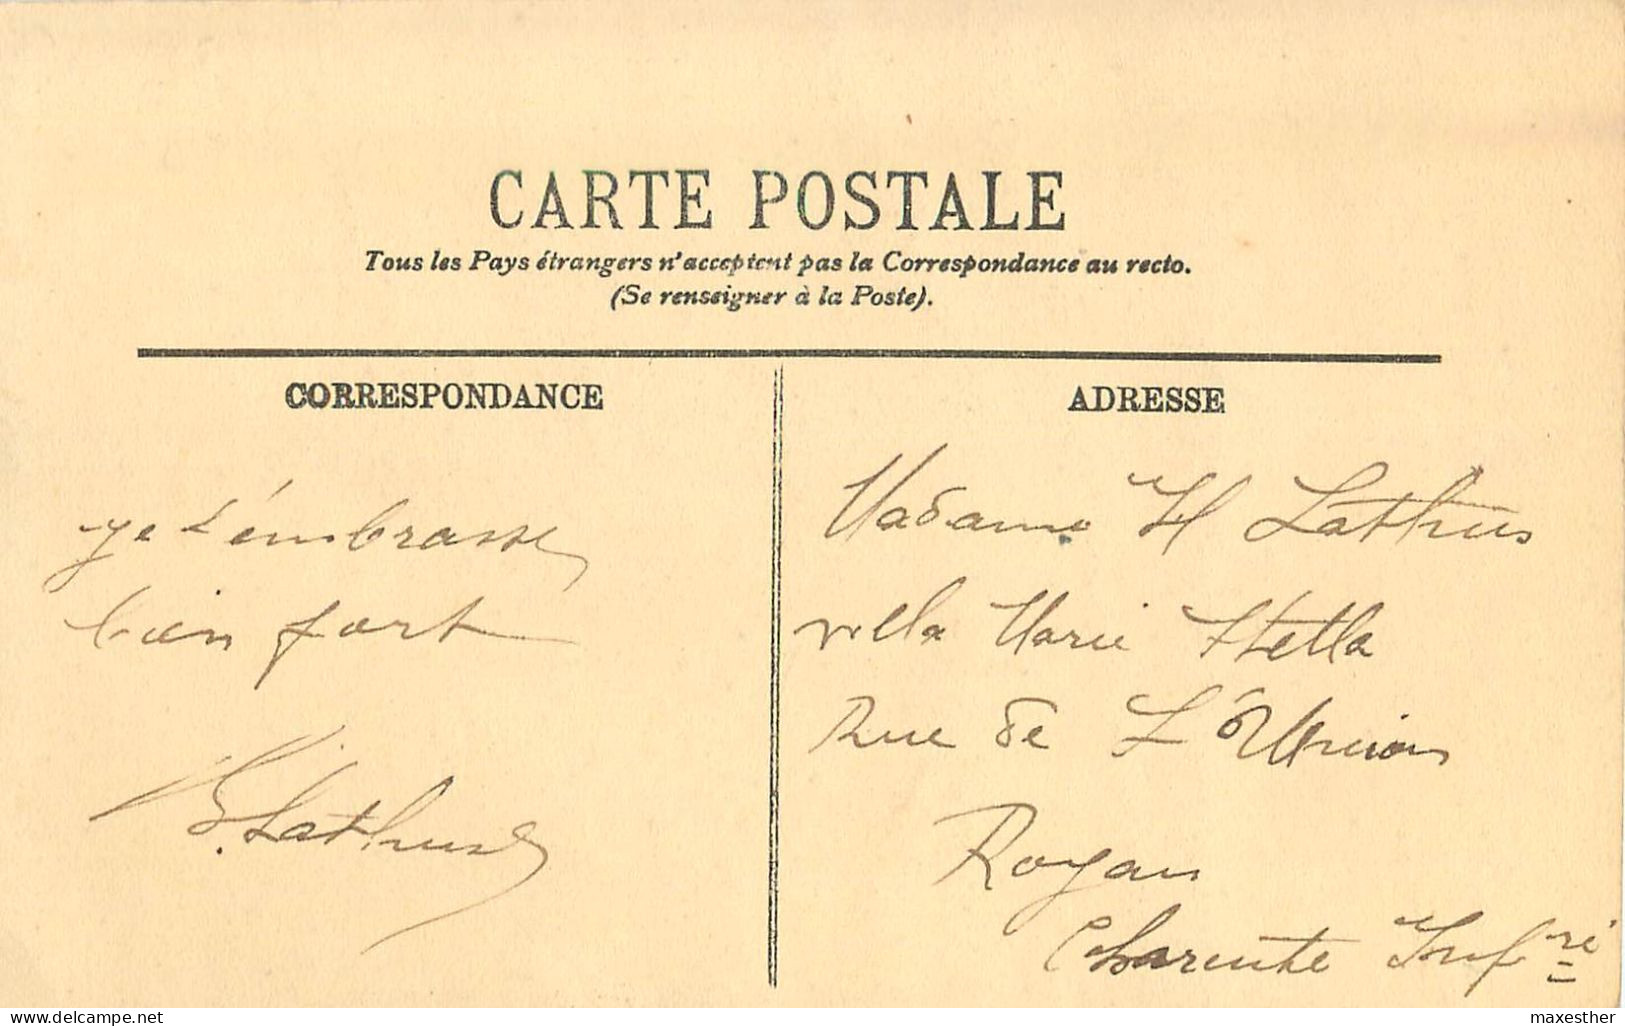 CARTE POSTALE
Tous les Pays étrangers n'acceptent pas la Correspondance au recto.
(Se renseigner à la Poste).
CORRESPONDANCE
je t'embrasse
bien fort
Lathus
ADRESSE
Madame H Lathus
villa Marie Stella
Rue de L'Union
Royan
Charente Infre
www.delcampe.net
maxesther